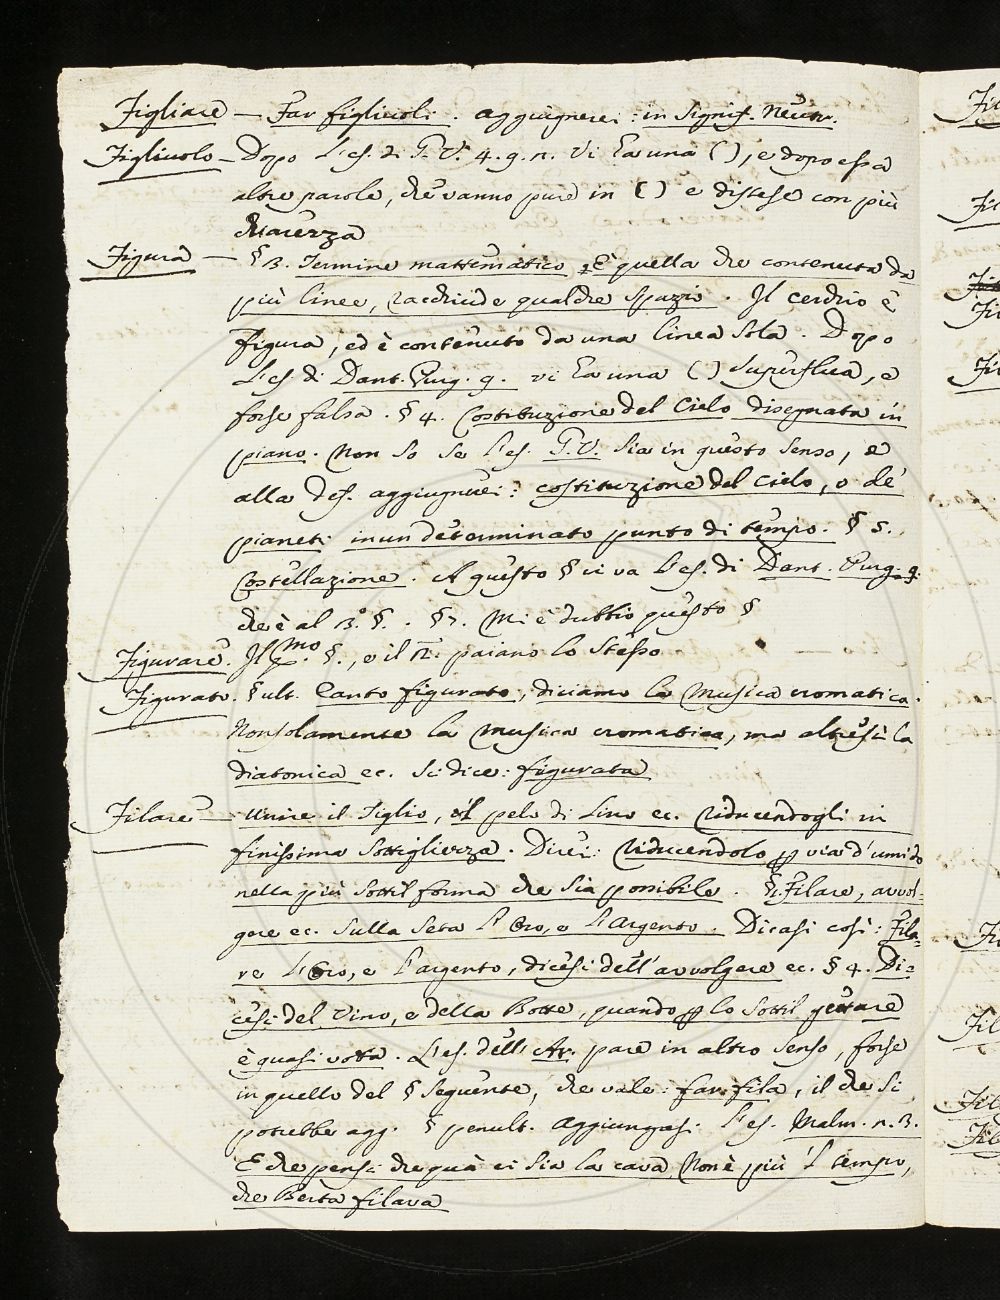 Figliare — Far figliuoli. aggiugnerei: in signif. Neutr.
Figliuolo — Dopo l'es. di G. V. 4. 9. n. vi ha una ( ), e dopo essa
altre parole, che vanno pure in ( ) e distese con più
chiarezza
Figura — § 3. Termine mattematico. È quella che contenuta da
più linee, racchiude qualche spazio. Il cerchio è
figura, ed è contenuto da una linea sola. Dopo
l'es. di Dant. Purg. 9. vi ha una ( ) superflua, e
forse falsa. § 4. Costituzione del Cielo disegnata in
piano. Non so se l'es. G. V. sia in questo senso, e
alla def. aggiugnerei: costituzione del cielo, o de'
pianeti in un determinato punto di tempo. § 5.
Costellazione. A questo § ci va l'es. di Dant. Purg. 9.
che è al 3.° §. . § 7. Mi è dubbio questo §
Figurare. Il mo §., e il n: paiano lo stesso
Figurato. § ult. Canto figurato, diciamo la Musica cromatica.
Non solamente la Musica cromatica, ma altresì la
diatonica ec. si dice: figurata
Filare — Unire il Tiglio, o'l pelo di Lino ec. riducendogli in
finissima sottigliezza. Direi: riducendolo p via d'umido
nella più sottil forma che sia possibile. § Filare, avvol-
gere ec. sulla Seta l'Oro, e l'Argento. Dicasi così: Fila-
re l'Oro, e l'argento, dicesi dell'avvolgere ec. § 4. Di-
cesi del Vino, e della Botte, quando p lo sottil gettare
è quasi vota. L'es. dell'Ar. pare in altro senso, forse
in quello del § seguente, che vale: far fila, il che si
potrebbe agg. § penult. Aggiungasi l'es. Malm. n. 3.
E che pensi che quà ci sia la cava, Non è più 'l tempo,
che Berta filava
Fi
Fi
Fi
Fi
Fi
Fi
Fil
Fil
Fil